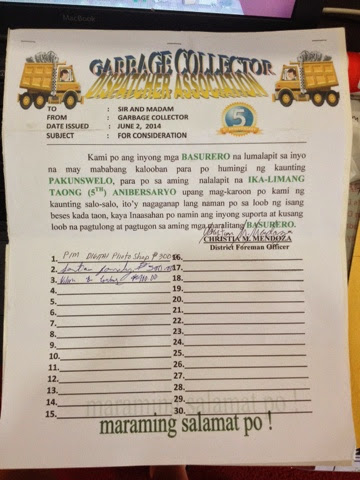 MacBook
GARBAGE COLLECTOR
DISPATCHER ASSOCIATION
TO : SIR AND MADAM
FROM : GARBAGE COLLECTOR
DATE ISSUED : JUNE 2, 2014
SUBJECT : FOR CONSIDERATION
5
Kami po ang inyong mga BASURERO na lumalapit sa inyo
na may mababang kalooban para po humingi ng kaunting
PAKUNSWELO, para po sa aming nalalapit na IKA-LIMANG
TAONG (5TH) ANIBERSARYO upang mag-karoon po kami ng
kaunting salo-salo, ito'y nagaganap lang naman po sa loob ng isang
beses kada taon, kaya Inaasahan po namin ang inyong suporta at kusang
loob na pagtulong at pagtugon sa aming mga maralitang BASURERO.
CHRISTIA M. MENDOZA
District Foreman Officer
1. PIM DIGITAL Photo Shop
2.
3.
4.
5.
6.
7.
8.
9.
10.
11.
12.
13.
14.
15.
16.
17.
18.
19.
20.
21.
22.
23.
24.
25.
26.
27.
28.
29.
30.
maraming salamat po !